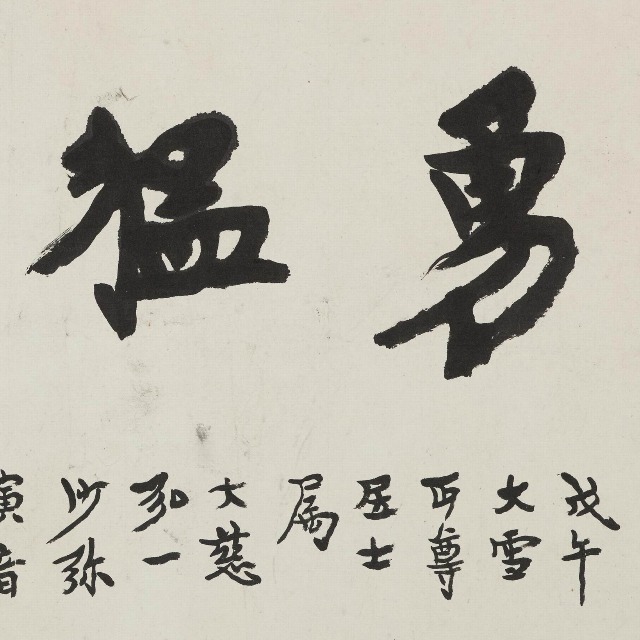 勇猛
戊午
大雪
丏尊
居士
属
大慈
弘一
沙弥
演音